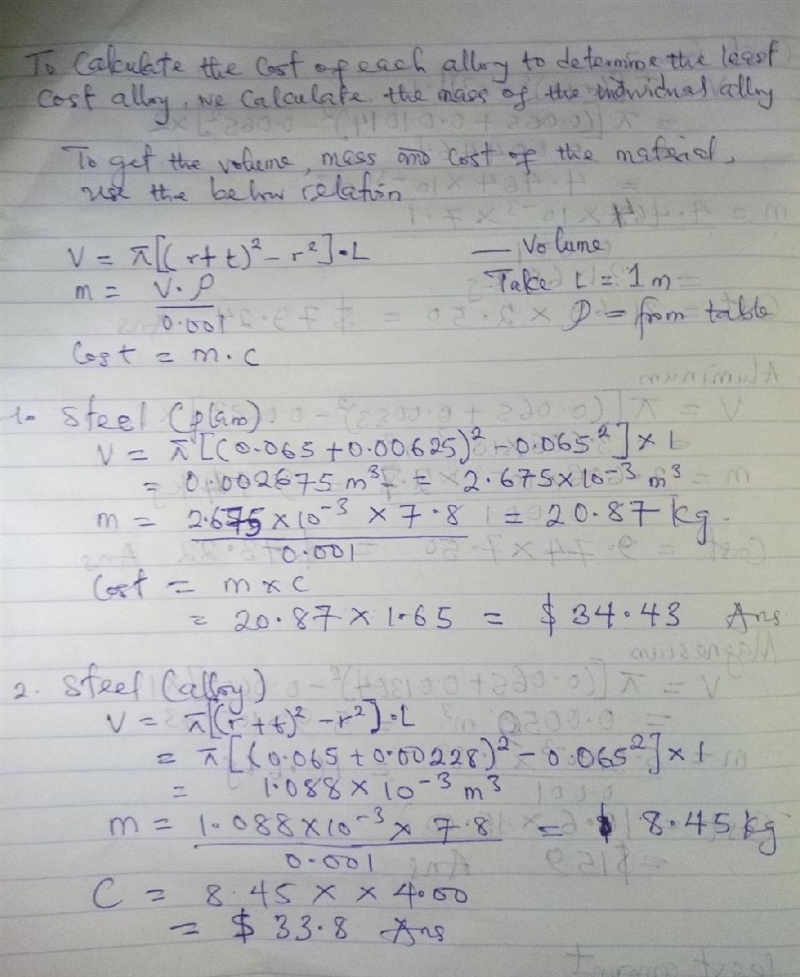 To Calculate the Cost of each alloy to determine the least
Cost alloy, we Calculate the mass of the individual alloy
To get the volume, mass and cost of the material,
use the below relation
V = π[(r+t)² - r²]·L — Volume
m = V·ρ / 0.001 Take L = 1m
ρ = from table
Cost = m·c
1. Steel (plain)
V = π[(0.065 + 0.00625)² - 0.065²] × 1
= 0.002675 m³ = 2.675×10⁻³ m³
m = 2.675 × 10⁻³ × 7.8 / 0.001 = 20.87 kg
Cost = m × C
= 20.87 × 1.65 = $ 34.43 Ans
2. Steel (alloy)
V = π[(r+t)² - r²]·L
= π[(0.065 + 0.00228)² - 0.065²] × 1
= 1.088 × 10⁻³ m³
m = 1.088×10⁻³ × 7.8 / 0.001 = 8.45 kg
C = 8.45 × × 4.00
= $ 33.8 Ans